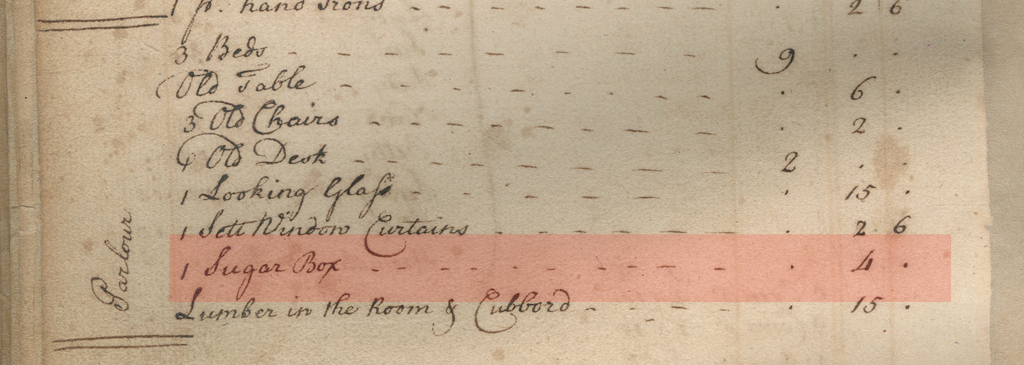 1 pr. hand Irons - - - - - - - - 2 6
3 Beds - - - - - - - - 9 . .
Old Table - - - - - - - - . 6 .
3 Old Chairs - - - - - - - - . 2 .
1 Old Desk - - - - - - - - 2 . .
1 Looking Glass - - - - - - - . 15 .
1 Sett Window Curtains - - - - - - . 2 6
1 Sugar Box - - - - - - - - . 4 .
Lumber in the Room & Cubbord - - - - . 15 .
Parlour